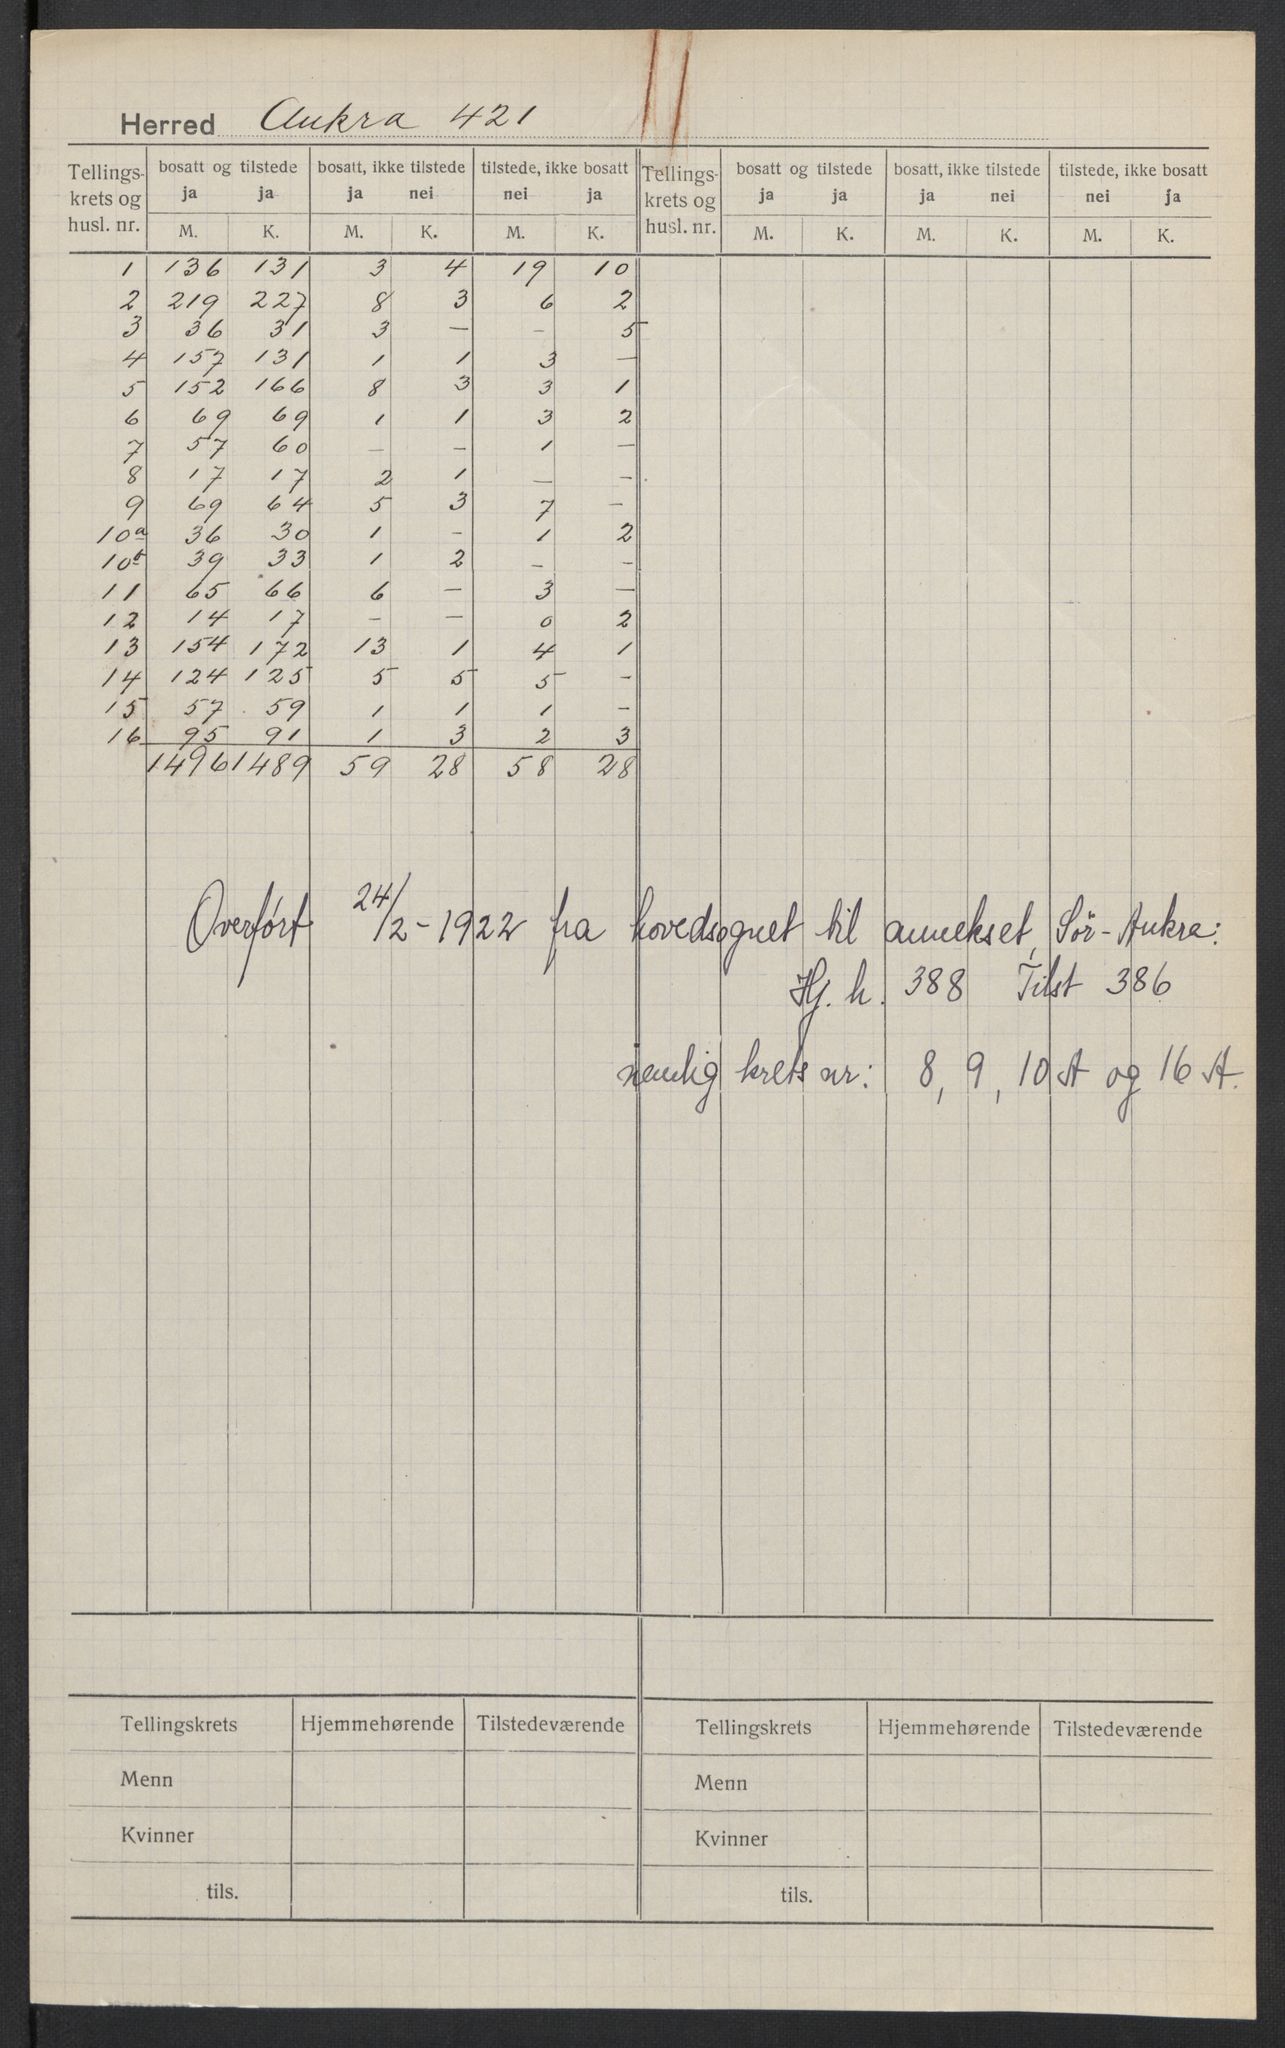 Herred Aukra 421
Tellings- krets og husl. nr. | bosatt og tilstede ja ja | bosatt, ikke tilstede ja nei | tilstede, ikke bosatt nei ja | Tellings- krets og husl. nr. | bosatt og tilstede ja ja | bosatt, ikke tilstede ja nei | tilstede, ikke bosatt nei ja
M. K. M. K. M. K. M. K. M. K. M. K.
1 136 131 3 4 19 10
2 219 227 8 3 6 2
3 36 31 3 — – 5
4 157 131 1 1 3 —
5 152 166 8 3 3 1
6 69 69 1 1 3 2
7 57 60 – – 1 —
8 17 17 2 1 — –
9 69 64 5 3 7 –
10a 36 30 1 – 1 2
10b 39 33 1 2 – –
11 65 66 6 — 3 —
12 14 17 – — 0 2
13 154 172 13 1 4 1
14 124 125 5 5 5 –
15 57 59 1 1 1 –
16 95 91 1 3 2 3
1496 1489 59 28 58 28
Overført 24/2-1922 fra hovedsognet til annekset, Sör-Aukra:
Hj. h. 388 Tilst 386
nemlig krets nr: 8, 9, 10 A og 16 A.
Tellingskrets Hjemmehørende Tilstedeværende Tellingskrets Hjemmehørende Tilstedeværende
Menn Menn
Kvinner Kvinner
tils. tils.